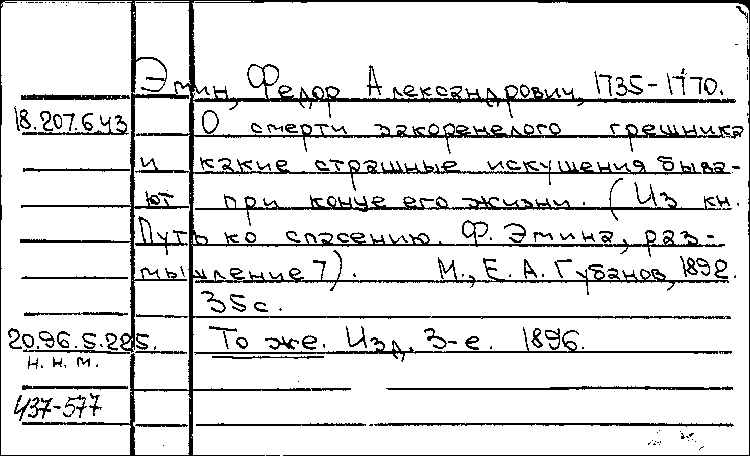 Эмин, Федор Александрович, 1735-1770.
18.207.6.43 О смерти закоренелого грешника
и какие страшные искушения быва-
ют при конце его жизни. (Из кн.
Путь ко спасению. Ф. Эмина, раз-
мышление 7). М., Е. А. Губанов, 1892.
35с.
20.96.5.225. То же. Изд. 3-е. 1896.
н. н. м.
437-577